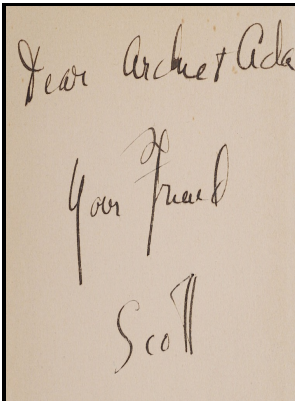 Dear Archie + Ada
Your Friend
Scott